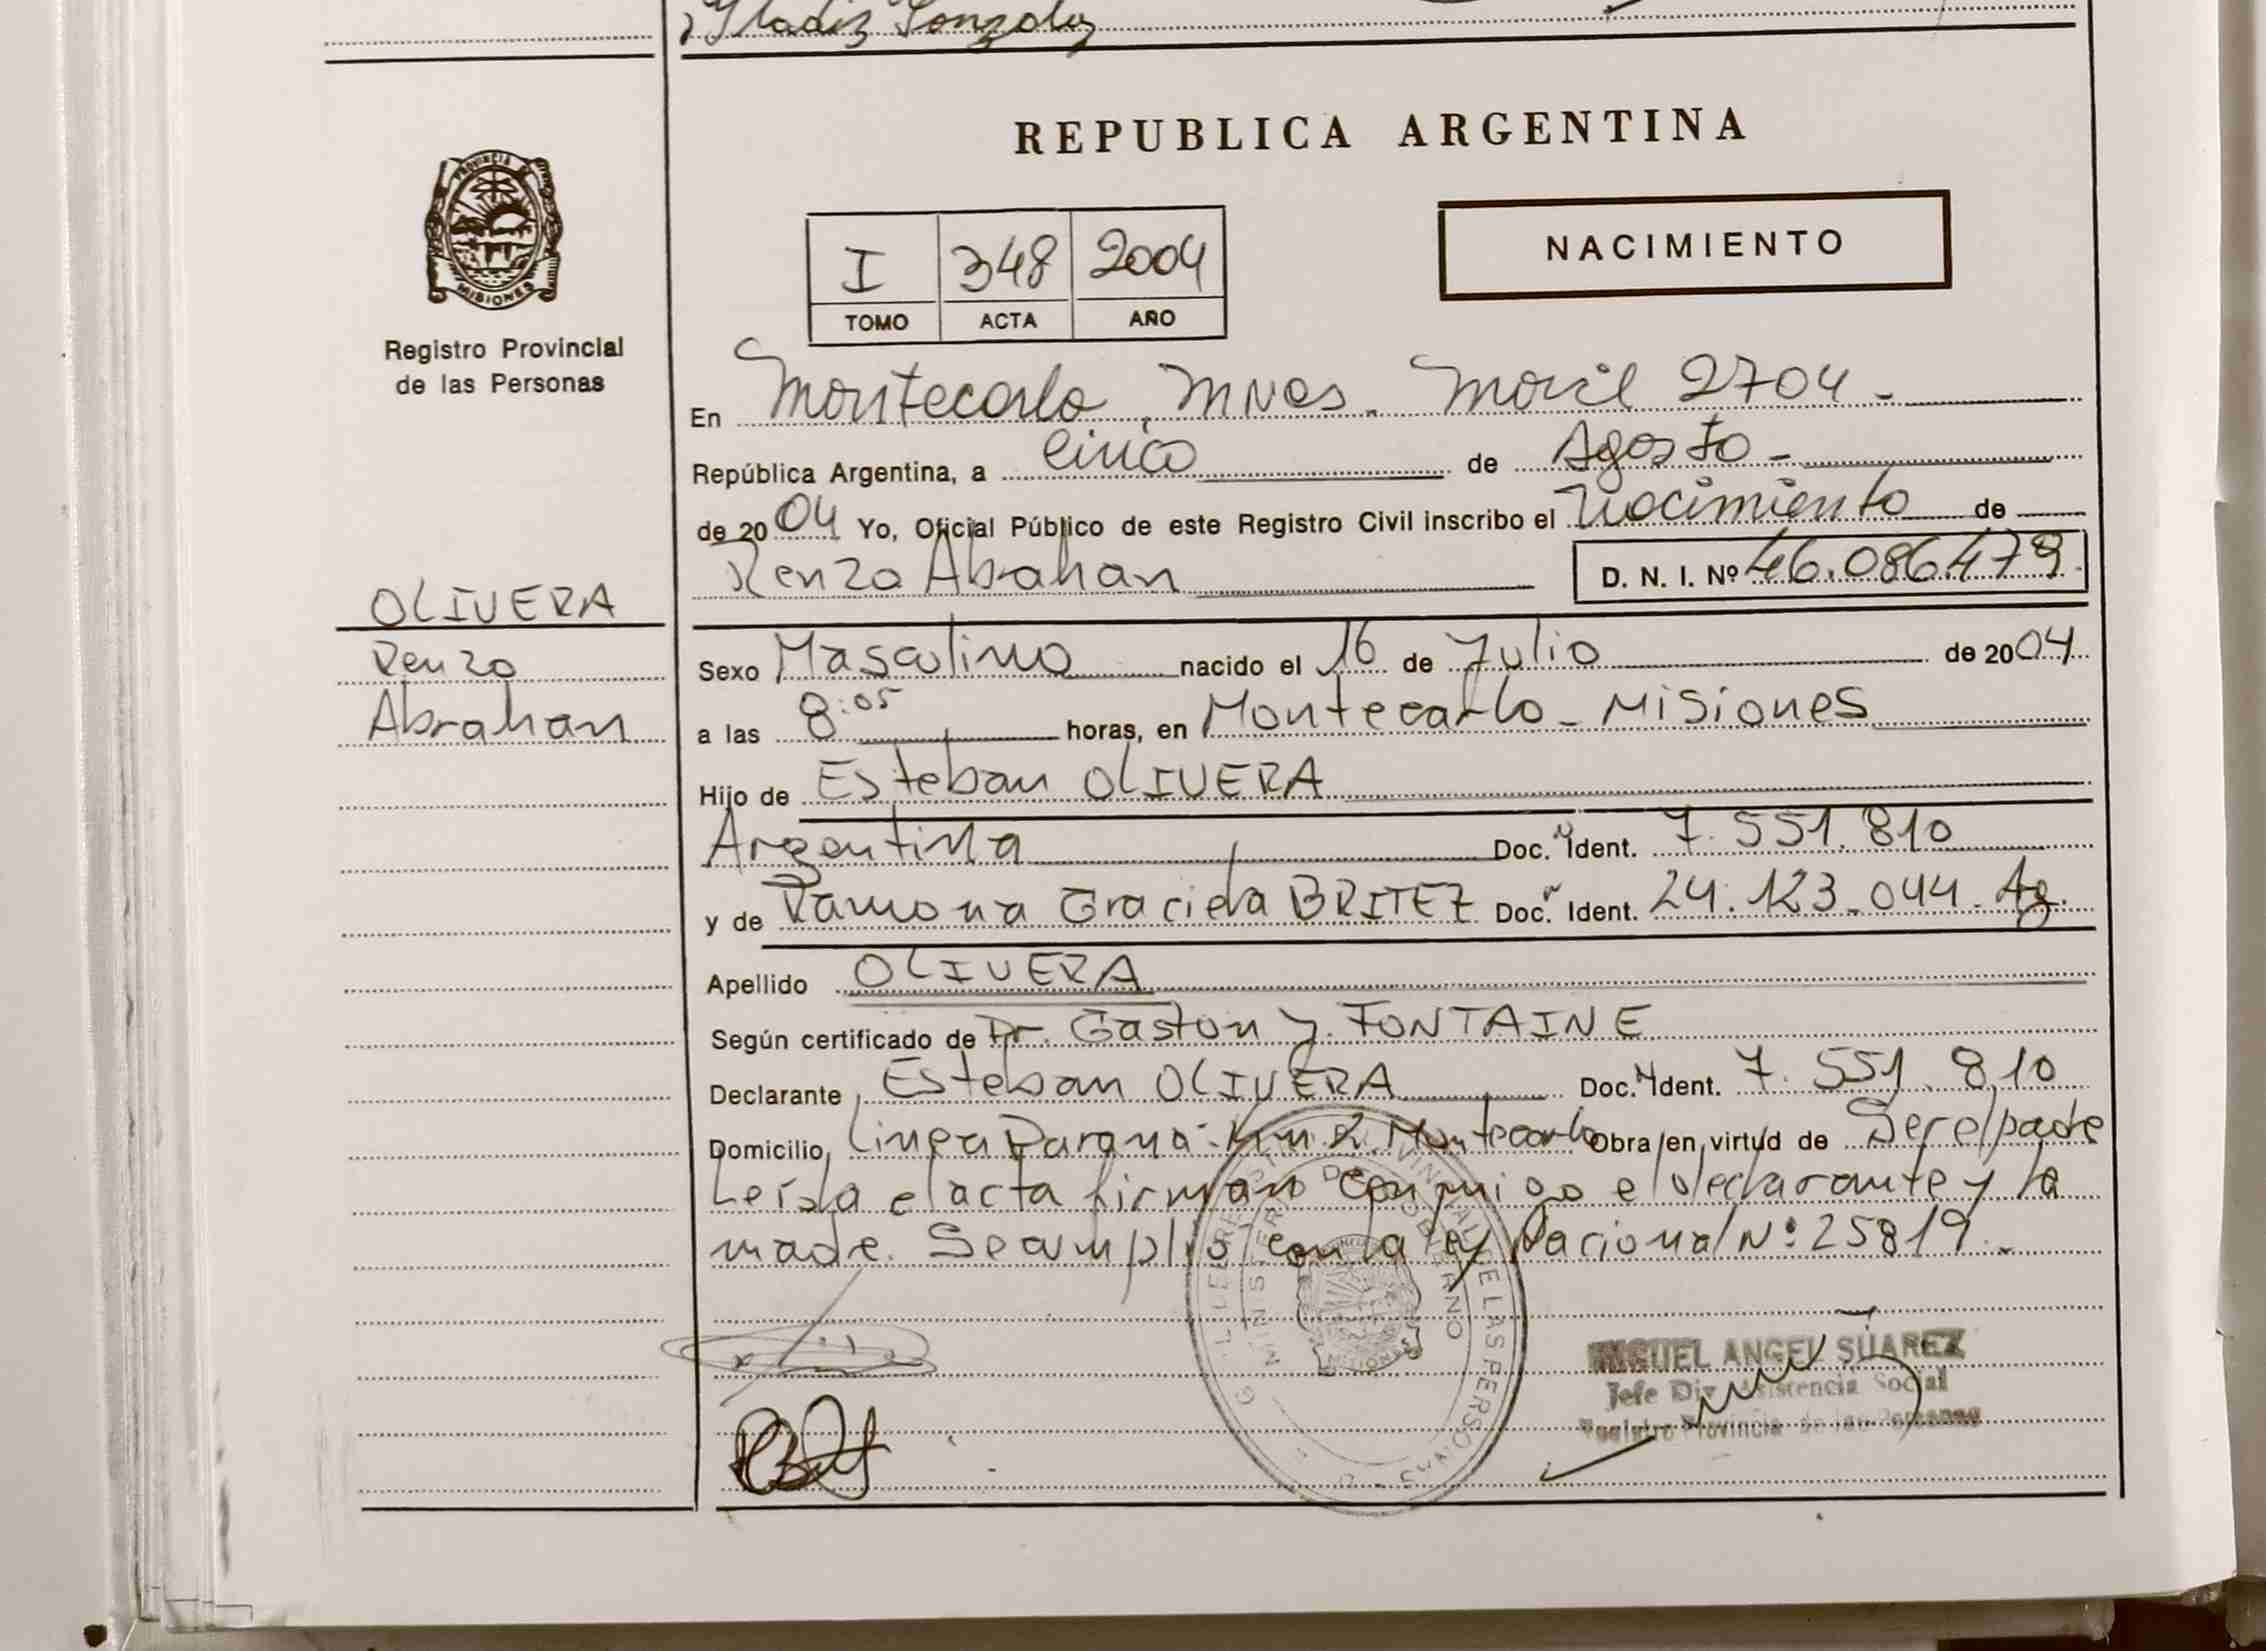 Gladiz Gonzalez
PROVINCIA
MISIONES
Registro Provincial
de las Personas
REPUBLICA ARGENTINA
NACIMIENTO
I 348 2004
TOMO ACTA AÑO
En Montecarlo, Mnes. Movil 2704 -
República Argentina, a cinco de Agosto -
de 2004 Yo, Oficial Público de este Registro Civil inscribo el Nacimiento de
Renzo Abrahan D. N. I. Nº 46.086.479.
OLIVERA
Renzo
Abrahan
Sexo Masculino nacido el 16 de Julio de 2004
a las 8:05 horas, en Montecarlo - Misiones
Hijo de Esteban OLIVERA
Argentina Doc. Ident. 7.551.810
y de Ramona Graciela BRITEZ Doc. Ident. 24.123.044. Ag.
Apellido OLIVERA
Según certificado de Dr. Gaston J. FONTAINE
Declarante Esteban OLIVERA Doc. Ident. 7.551.810
Domicilio Linea Parana - Km 2. Montecarlo Obra en virtud de Ser el padre
Leída el acta firman conmigo el declarante y la
madre. Se cumplió con la ley Nacional Nº: 25819.-
MINISTERIO DE GOBIERNO
MISIONES
MIGUEL ANGEL SUAREZ
Jefe Div. Asistencia Social
Registro Provincial de las Personas